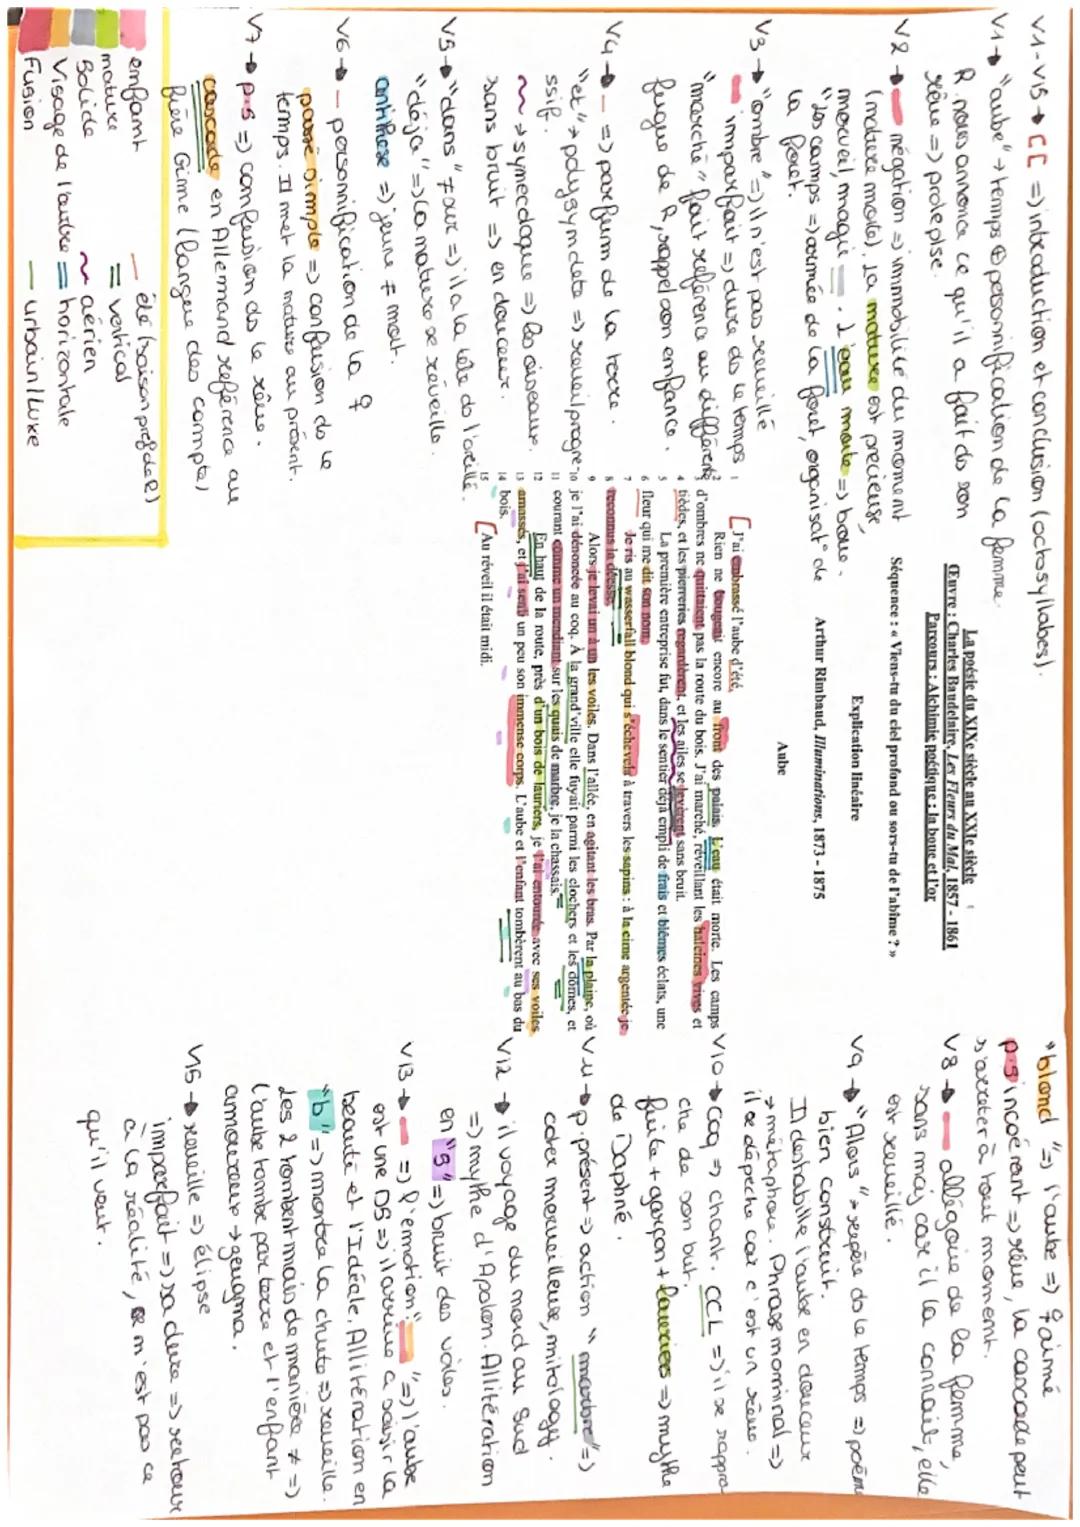 V1-V15 → CC => introduction et conclusion (octosyllabes).
V1 → "aube" → temps ⊕ personnification de la femme
R nous annonce ce qu'il a fait do son
rêve => prolepse.
V2 → négation => immobilité du moment
(nature morte), la nature est précieuse,
merveil, magie. L'eau morte => boue.
"les camps => armée de la foret, organisat° de
la foret.
V3 → "ombre" => il n'est pas reveillé
imparfait => dure ds le temps
"marché" fait référence au différente
fugue de R, rappel son enfance.
V4 → — => parfum de la terre.
"et" → polysyndète => reveil progre
ssif.
~ → synecdoque => les oiseaux.
sans bruit => en douceur.
V5 → "dans" ≠ sur => il a la tête do l'oreillé.
"déja" => la nature se réveille.
antithèse => jeune ≠ mort.
V6 → — personnification de la ♀
passé simple => confusion do le
temps. Il met la nature au présent.
V7 → p.s => confusion do le rêve.
cascade en Allemand référence au
frère Grime (langue des compte)
enfant
nature
Solide
Visage de l'aube
Fusion
— élé (saison préf de R)
= vertical
~ aérien
= horizontale
— urbain/luxe
La poésie du XIXe siècle au XXIe siècle
Œuvre : Charles Baudelaire, Les Fleurs du Mal, 1857 - 1861
Parcours : Alchimie poétique : la boue et l'or
Séquence : « Viens-tu du ciel profond ou sors-tu de l'abîme ? »
Explication linéaire
Arthur Rimbaud, Illuminations, 1873 - 1875
Aube
1 J'ai embrassé l'aube d'été.
2 Rien ne bougeait encore au front des palais. L'eau était morte. Les camps
3 d'ombres ne quittaient pas la route du bois. J'ai marché, réveillant les haleines vives et
4 tièdes, et les pierreries regardèrent, et les ailes se levèrent sans bruit.
5 La première entreprise fut, dans le sentier déjà empli de frais et blêmes éclats, une
6 fleur qui me dit son nom.
7 Je ris au wasserfall blond qui s'échevela à travers les sapins : à la cime argentée je
8 reconnus la déesse.
9 Alors je levai un à un les voiles. Dans l'allée, en agitant les bras. Par la plaine, où
10 je l'ai dénoncée au coq. À la grand'ville elle fuyait parmi les clochers et les dômes, et
11 courant comme un mendiant sur les quais de marbre, je la chassais.
12 En haut de la route, près d'un bois de lauriers, je l'ai entourée avec ses voiles
13 amassés, et j'ai senti un peu son immense corps. L'aube et l'enfant tombèrent au bas du
14 bois.
15 Au réveil il était midi.
"blond" => l'aube => ♀ aimé
p.s incoérent => rêve, la cascade peut
s'arreter à tout moment.
V8 → allégorie de la femme,
sans maj car il la connait, elle
est reveillé.
V9 → "Alors" → repère do le temps => poème
bien construit.
Il deshabille l'aube en douceur
→ métaphore. Phrase nominal =>
il se dépeche car c'est un rêve.
V10 → Coq => chant. CCL => il se rappro
che de son but.
fuite + garçon + lauriers => mythe
de Daphné.
V11 → p. présent => action "marbre" =>
coter merveilleux, mitology.
V12 → il voyage du nord au Sud
=> mythe d'Apolon. Allitération
en "s" => bruit des voiles.
V13 → => l'emotion, " " => l'aube
est une DS => il arrive a saisir la
beauté et l'Idéale. Allitération en
"b" => montre la chute => reveille.
Les 2 tombent mais de manière ≠ =>
l'aube tombe par terre et l'enfant
amoureux → genugma.
V15 → reveille => élipse
imparfait => sa dure => retour
à la réalité, ce n'est pas ce
qu'il veut.